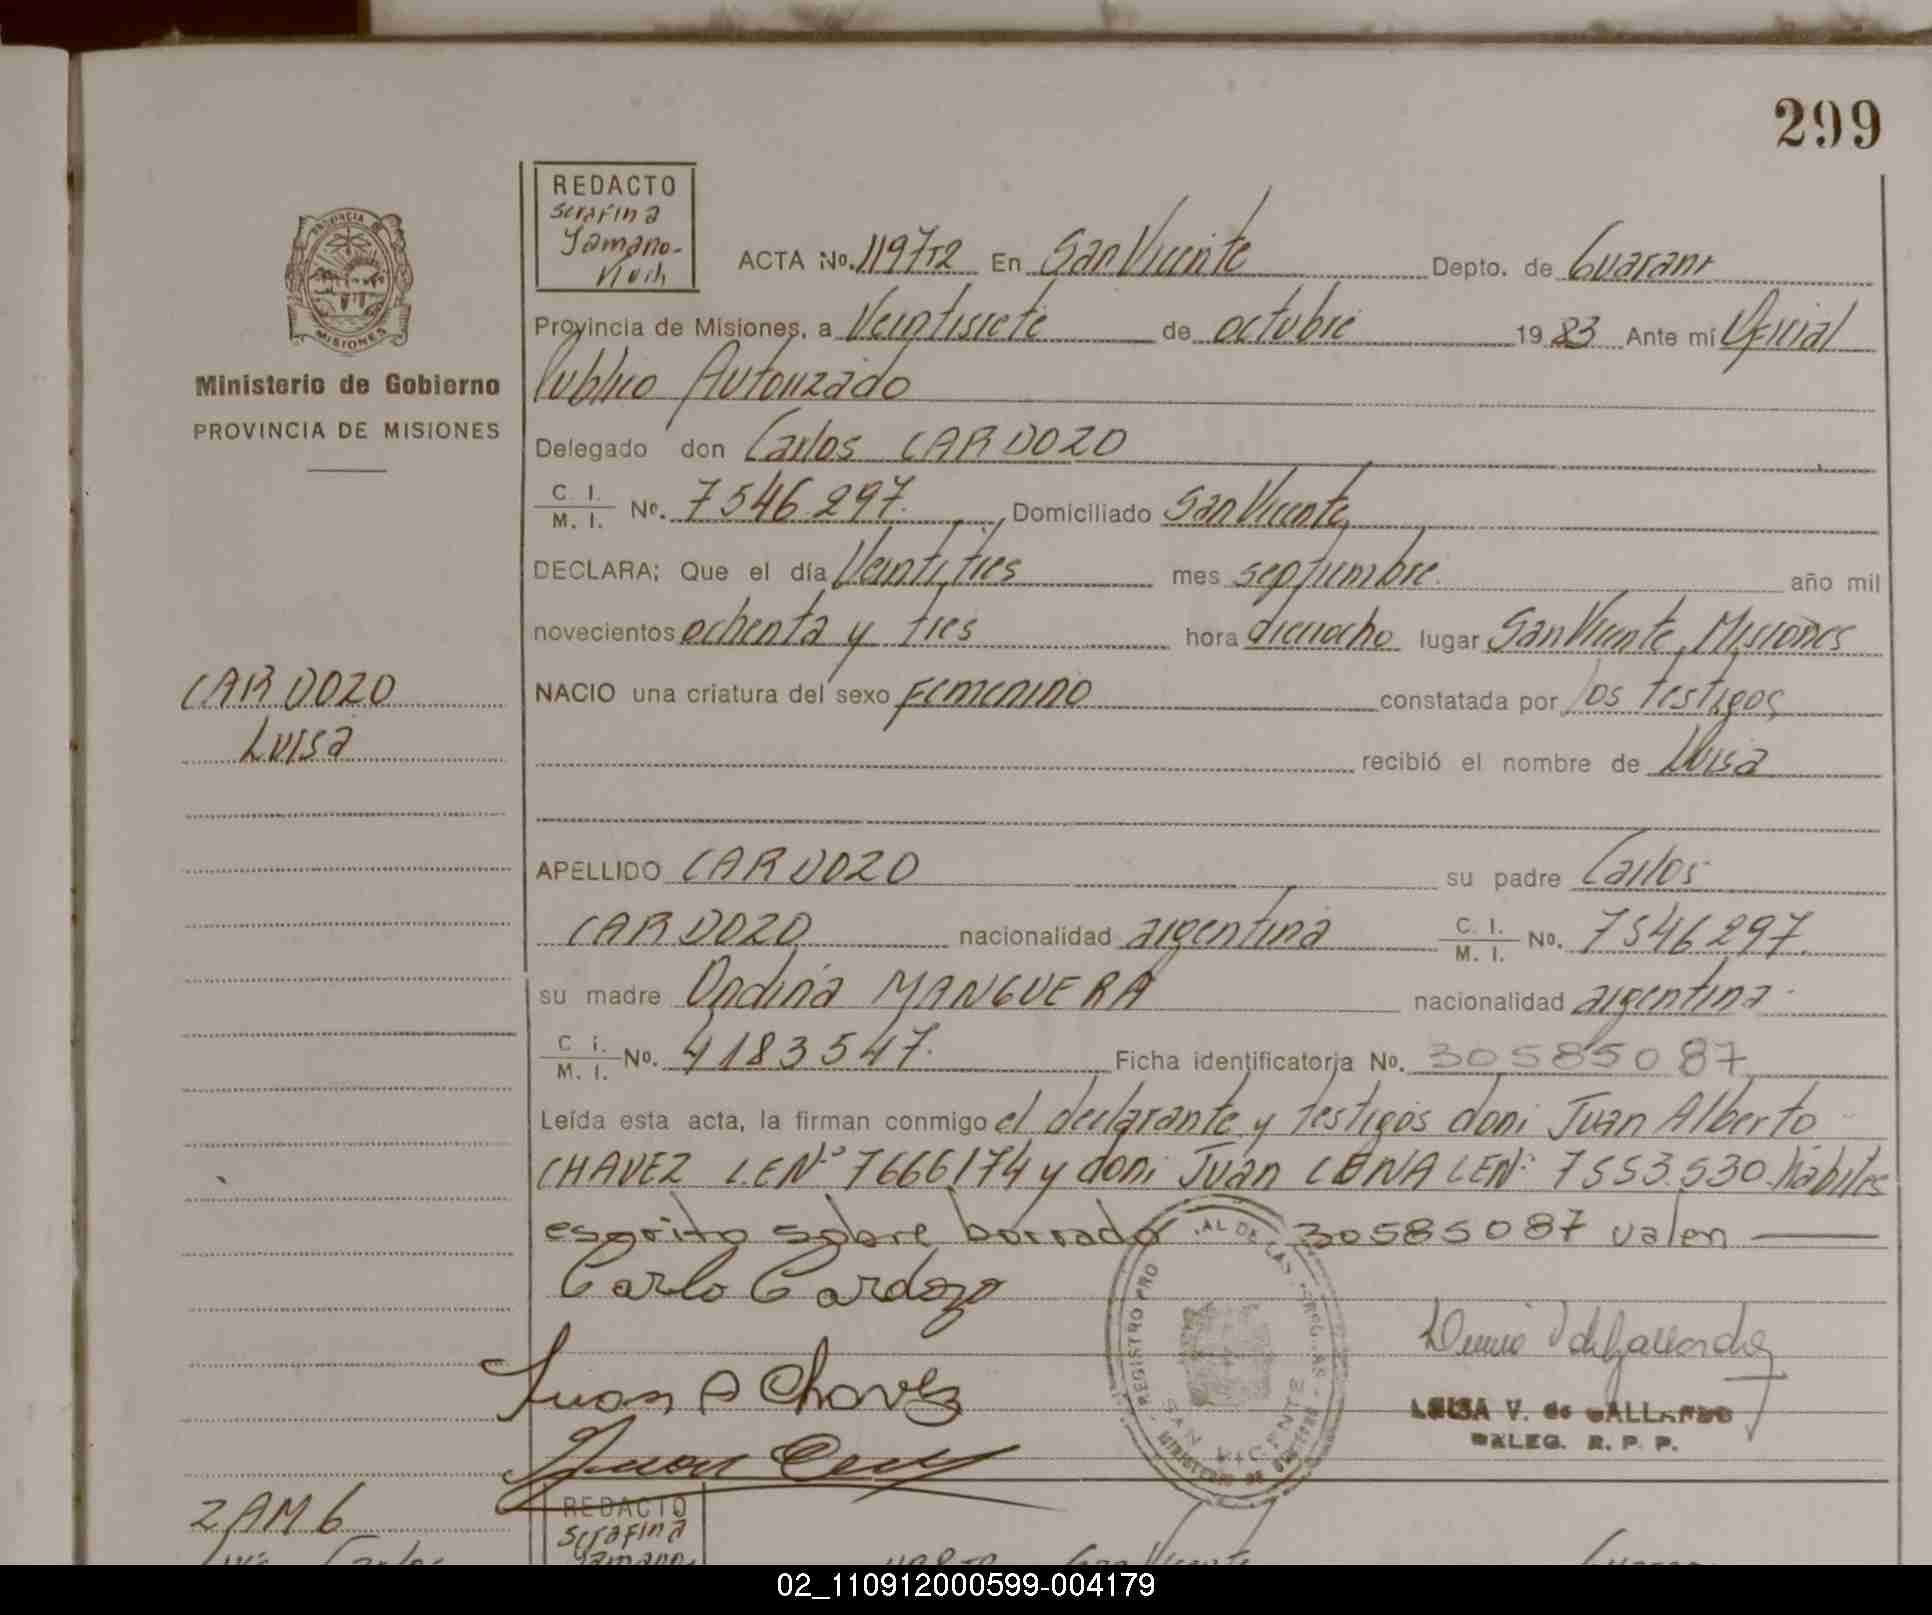 299
REDACTO
Serafina
ACTA No. 1197T2 En San Vicente Depto. de Guarani
Provincia de Misiones, a Veintisiete de octubre 19 83 Ante mí Oficial
Publico Autorizado
Ministerio de Gobierno
PROVINCIA DE MISIONES
Delegado don Carlos CARDOZO
C. I.
M. I. No. 7546297. Domiciliado San Vicente,
DECLARA; Que el día Veintitres mes septiembre. año mil
novecientos ochenta y tres hora dieciocho lugar San Vicente, Misiones
CARDOZO
Luisa
NACIO una criatura del sexo Femenino constatada por los testigos
recibió el nombre de Luisa
APELLIDO CARDOZO su padre Carlos
CARDOZO nacionalidad argentina C. I.
M. I. No. 7546297.
su madre Ondina MANGUERA nacionalidad argentina
C i.
M. I. No. 4183547. Ficha identificatoria No. 30585087
Leída esta acta, la firman conmigo el declarante y testigos don: Juan Alberto
CHAVEZ L.E.Nº 7666174 y don: Juan LEN: 7553.530 hábiles
escrito sobre borrado 30585087 valen
Carlo Cardozo
Juan A Chavez
Juan
REGISTRO PRO AL DE LAS
SAN VICENTE
LUISA V. de GALLARDO
DELEG. R. P. P.
REDACTO
Serafina
San Vicente
02_110912000599-004179